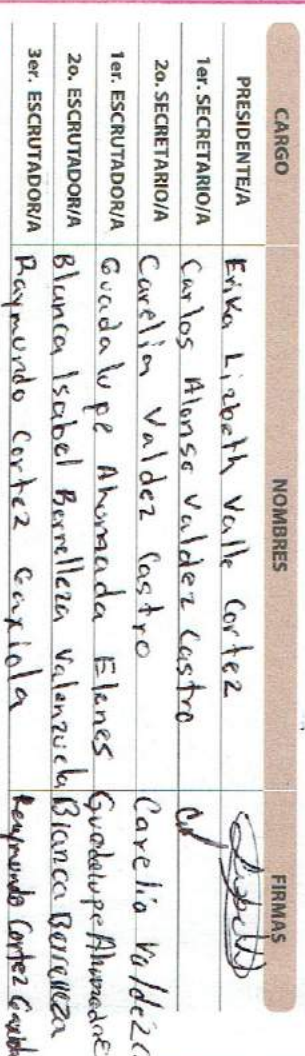 CARGO NOMBRES FIRMAS
PRESIDENTE/A Erika Lizbeth Valle Cortez Lizbeth
1er. SECRETARIO/A Carlos Alonso Valdez Castro
2o. SECRETARIO/A Carelia Valdez Castro Carelia Valdez C
1er. ESCRUTADOR/A Guadalupe Ahumada Elenes Guadalupe Ahumada E
2o. ESCRUTADOR/A Blanca Isabel Berrelleza Valenzuela Blanca Berrelleza
3er. ESCRUTADOR/A Raymundo Cortez Gaxiola Raymundo Cortez Gaxiola